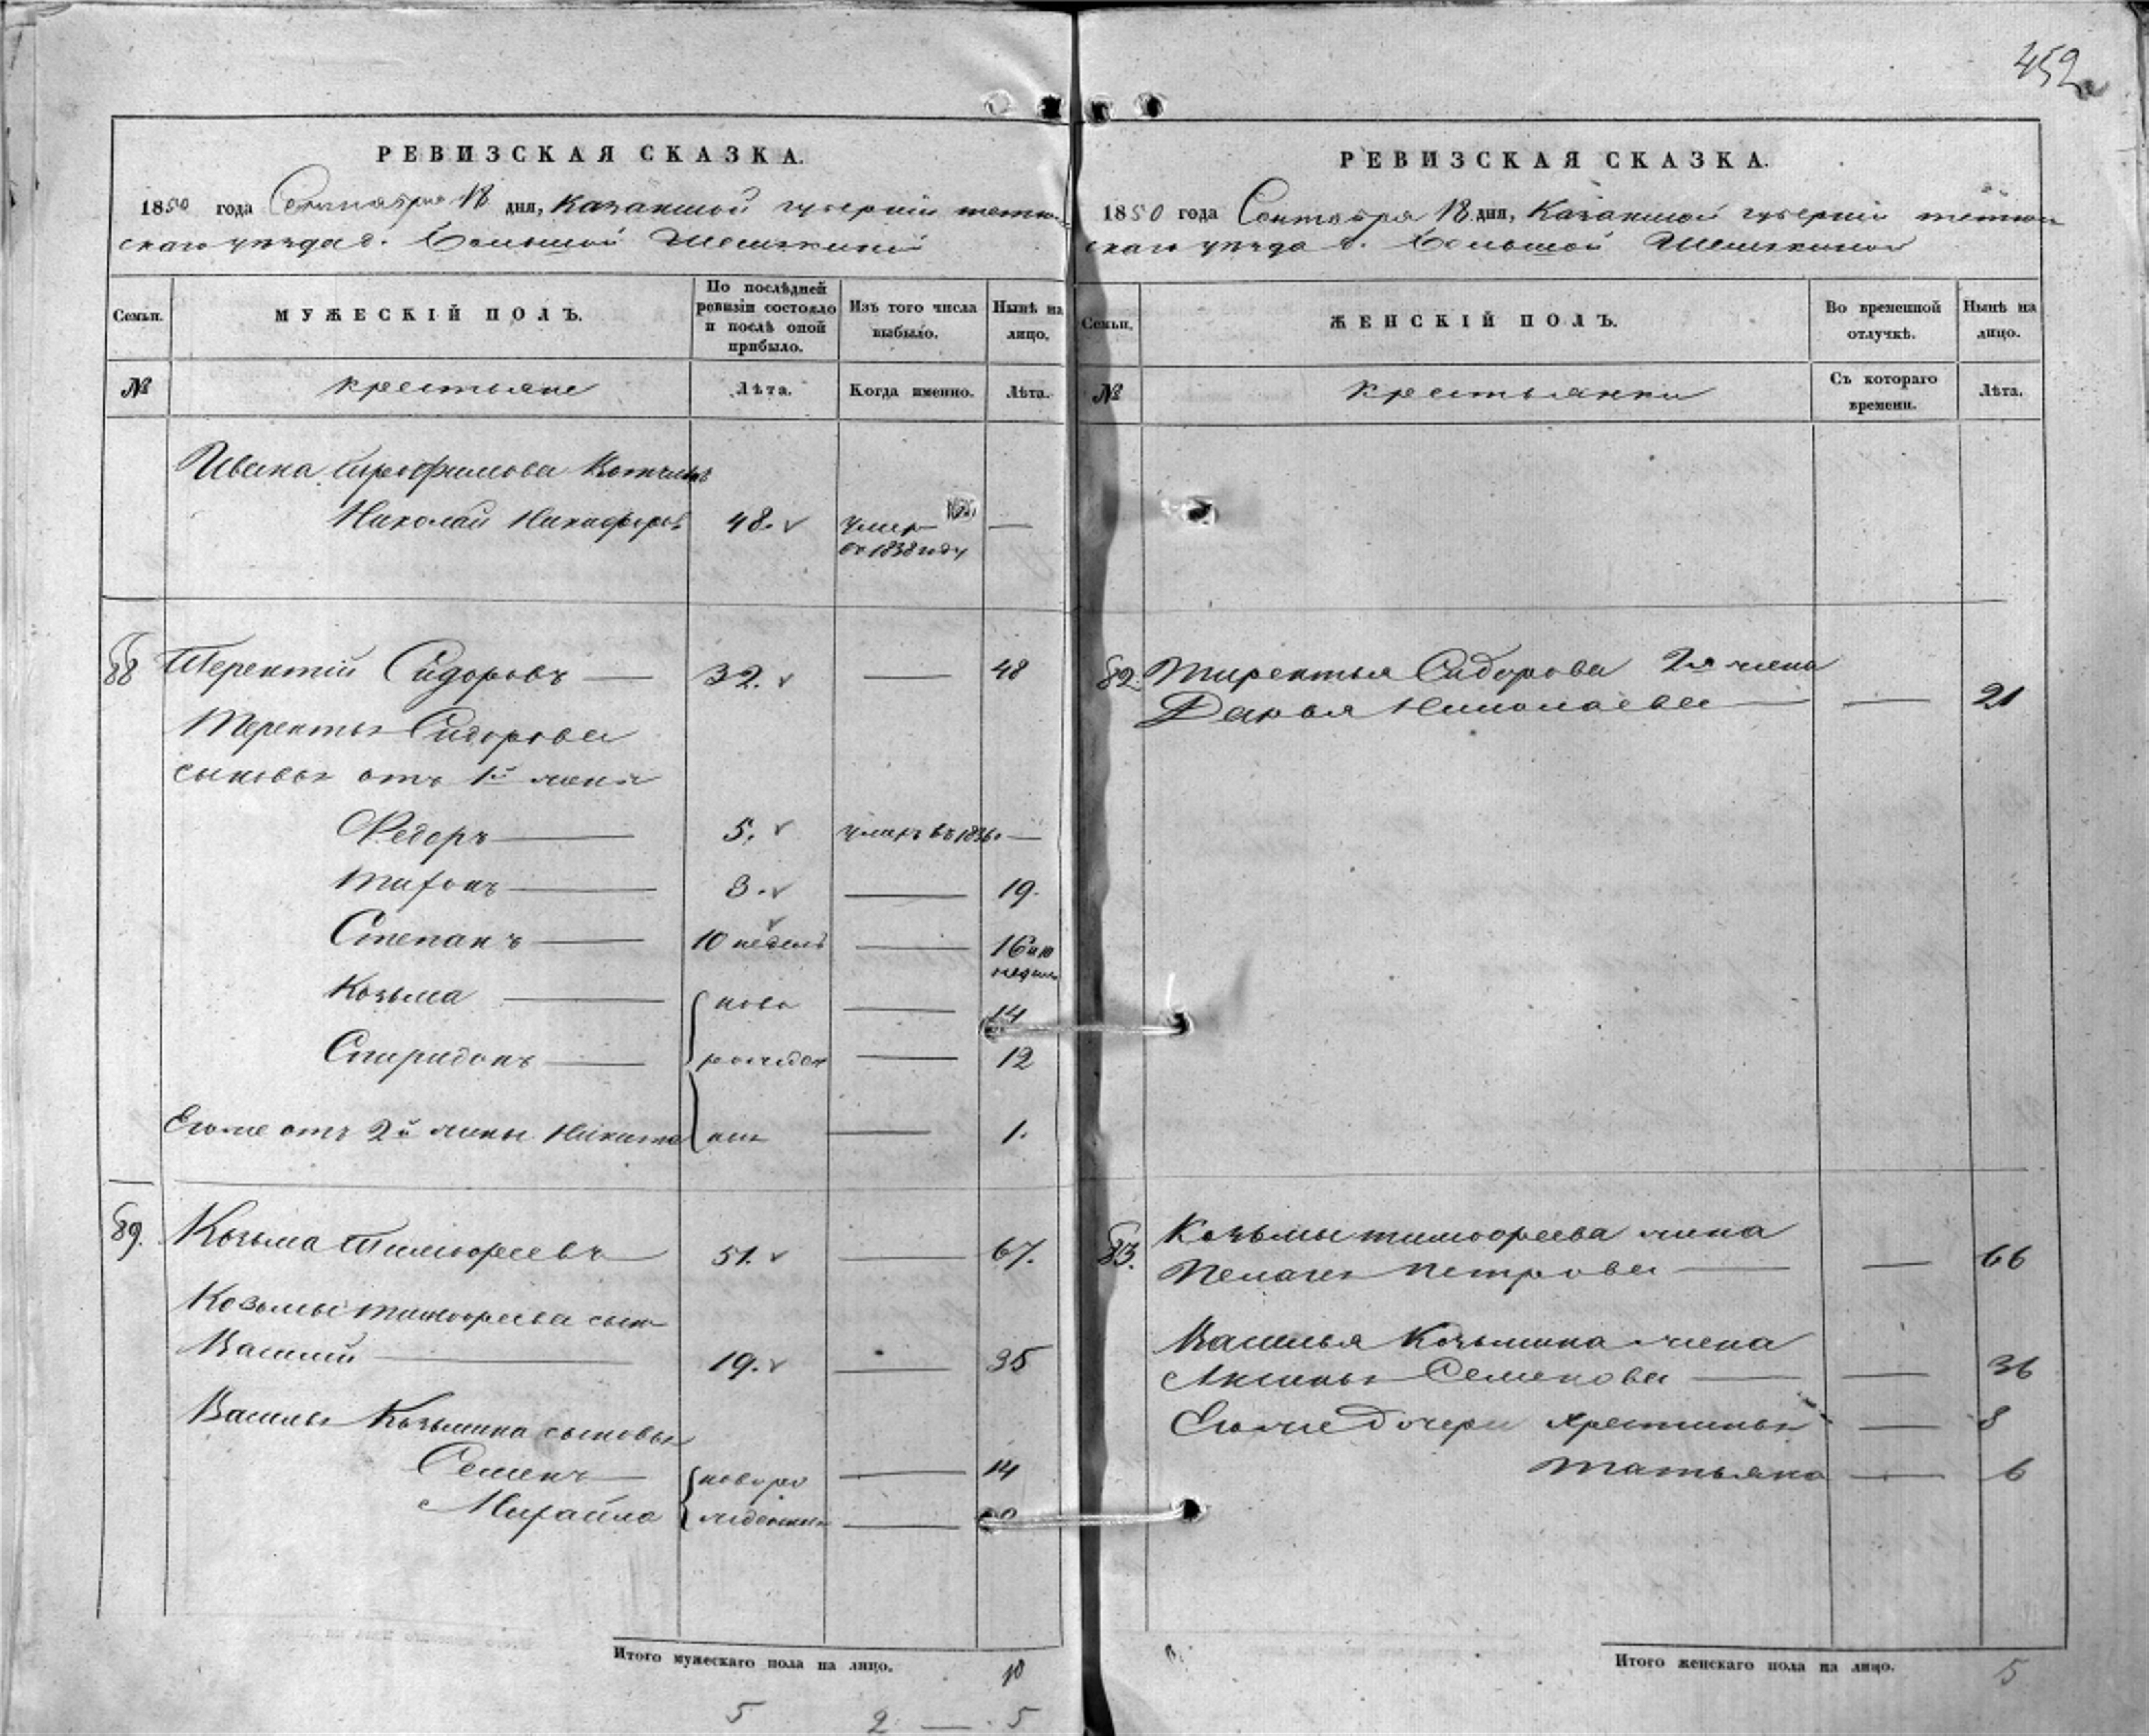 452
РЕВИЗСКАЯ СКАЗКА.
1850 года Сентября 18 дня, Казанской губернии тетю-
скаго уѣзда д. Большой Шемякиной
Семьи. МУЖЕСКІЙ ПОЛЪ. По послѣдней ревизіи состояло и послѣ оной прибыло. Изъ того числа выбыло. Нынѣ на лицо.
№ крестьяне Лѣта. Когда именно. Лѣта.
Ивана Трофимова
Николай Никифоровъ 48. умер —
въ 1838 году
88 Терентій Сидоровъ — 32. — 48
Терентья Сидорова
сыновья отъ 1й жены
Федоръ — 5. умеръ въ 1836. —
Тихонъ — 3. — 19.
Степанъ — 10 недель — 16 и 10
недель
Козьма — ново — 14
Спиридонъ — рожден — 12
Егоже отъ 2й жены Никита ныя — 1.
89. Козьма Тимофеевъ 51. — 67.
Козьмы Тимофеева сын
Василий — 19. — 35
Василья Козьмина сыновья
Семенъ — новоро — 14
Михайла жденныя —
Итого мужескаго пола на лицо. 10
5 2 — 5
РЕВИЗСКАЯ СКАЗКА.
1850 года Сентября 18 дня, Казанской губернии тетю-
скаго уѣзда д. Большой Шемякиной
Семьи. ЖЕНСКІЙ ПОЛЪ. Во временной отлучкѣ. Нынѣ на лицо.
№ крестьянки Съ котораго времени. Лѣта.
82. Тирентья Сидорова 2я жена
Дарья Николаева — — 21
83. Козьмы тимофеева жена
Пелагея Петрова — — 66
Василья Козьмина жена
Аксинья Семенова — — 36
Егоже дочери Хрестинья — 8
Татьяна — 6
Итого женскаго пола на лицо. 5